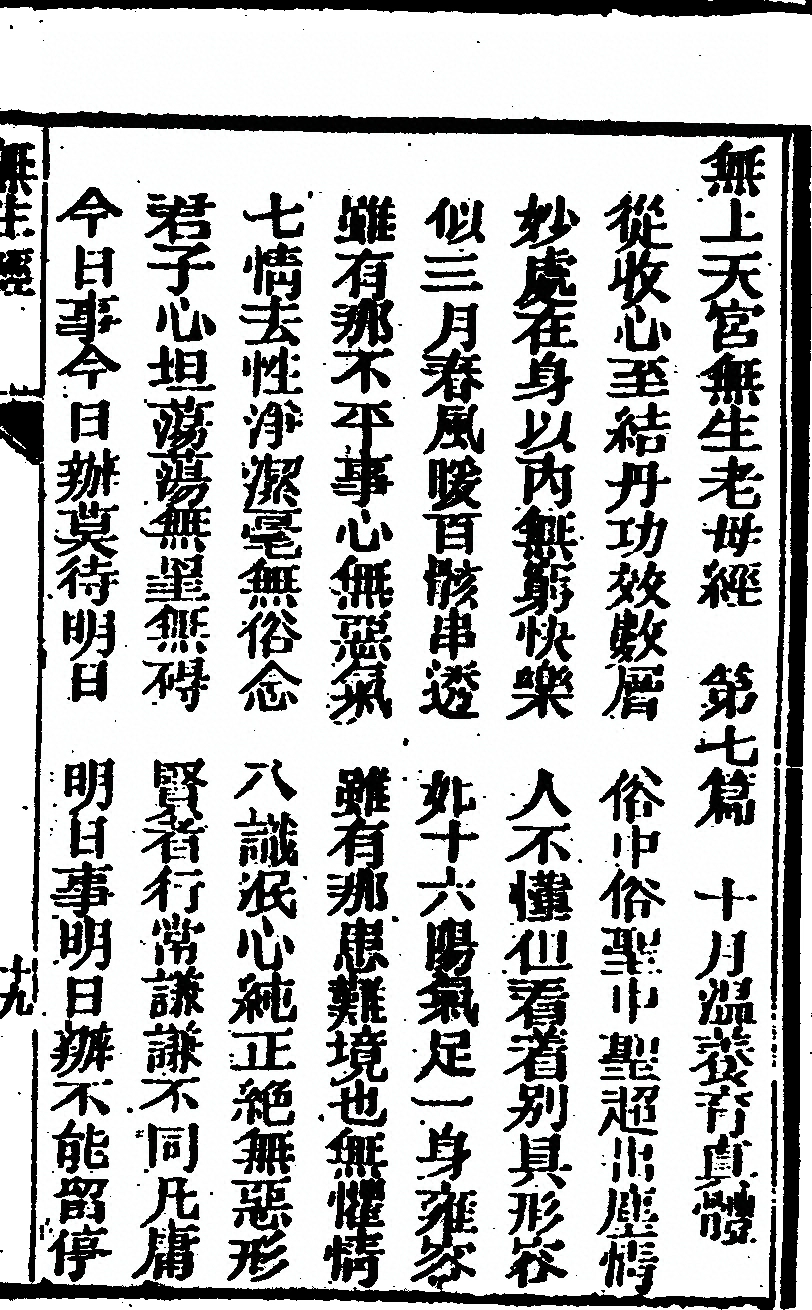 無上天宮無生老母經　第七篇　十月溫養育真體
從收心至結丹功效數層　俗中俗聖中聖超出塵情
妙處在身以內無窮快樂　人不懂但看着別具形容
似三月春風暖百骸串透　如十六陽氣足一身雍容
雖有那不平事心無惡氣　雖有那患難境也無懼情
七情去性淨潔毫無俗念　八識泯心純正絶無惡形
君子心坦蕩蕩無罣無碍　賢者行常謙謙不同凡庸
今日事今日辦莫待明日　明日事明日辦不能留停
無生經
十九